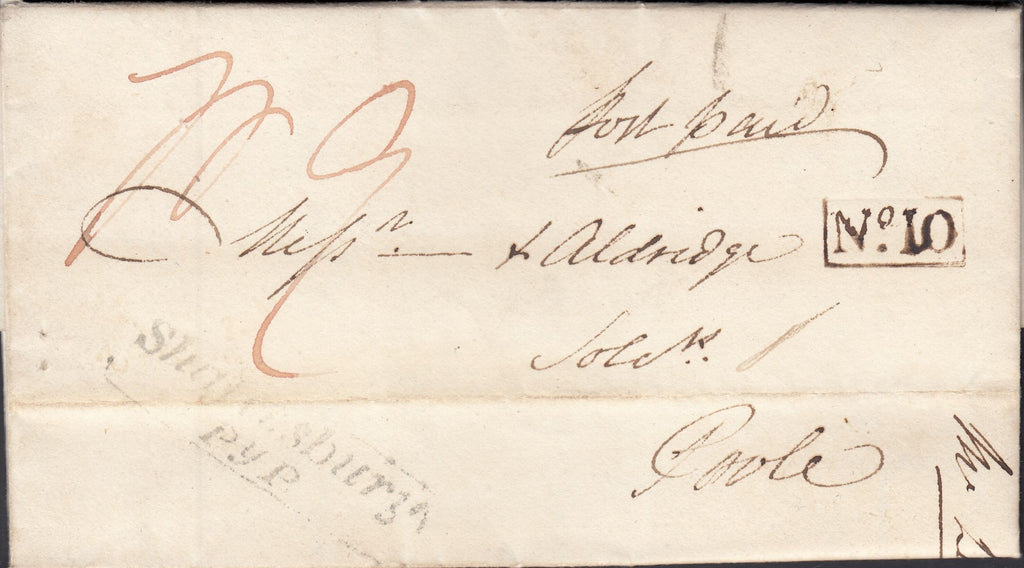 Post paid
Messrs — & Aldridge
No. 10
Solrs.
Poole
Shaftesbury
P.y P.